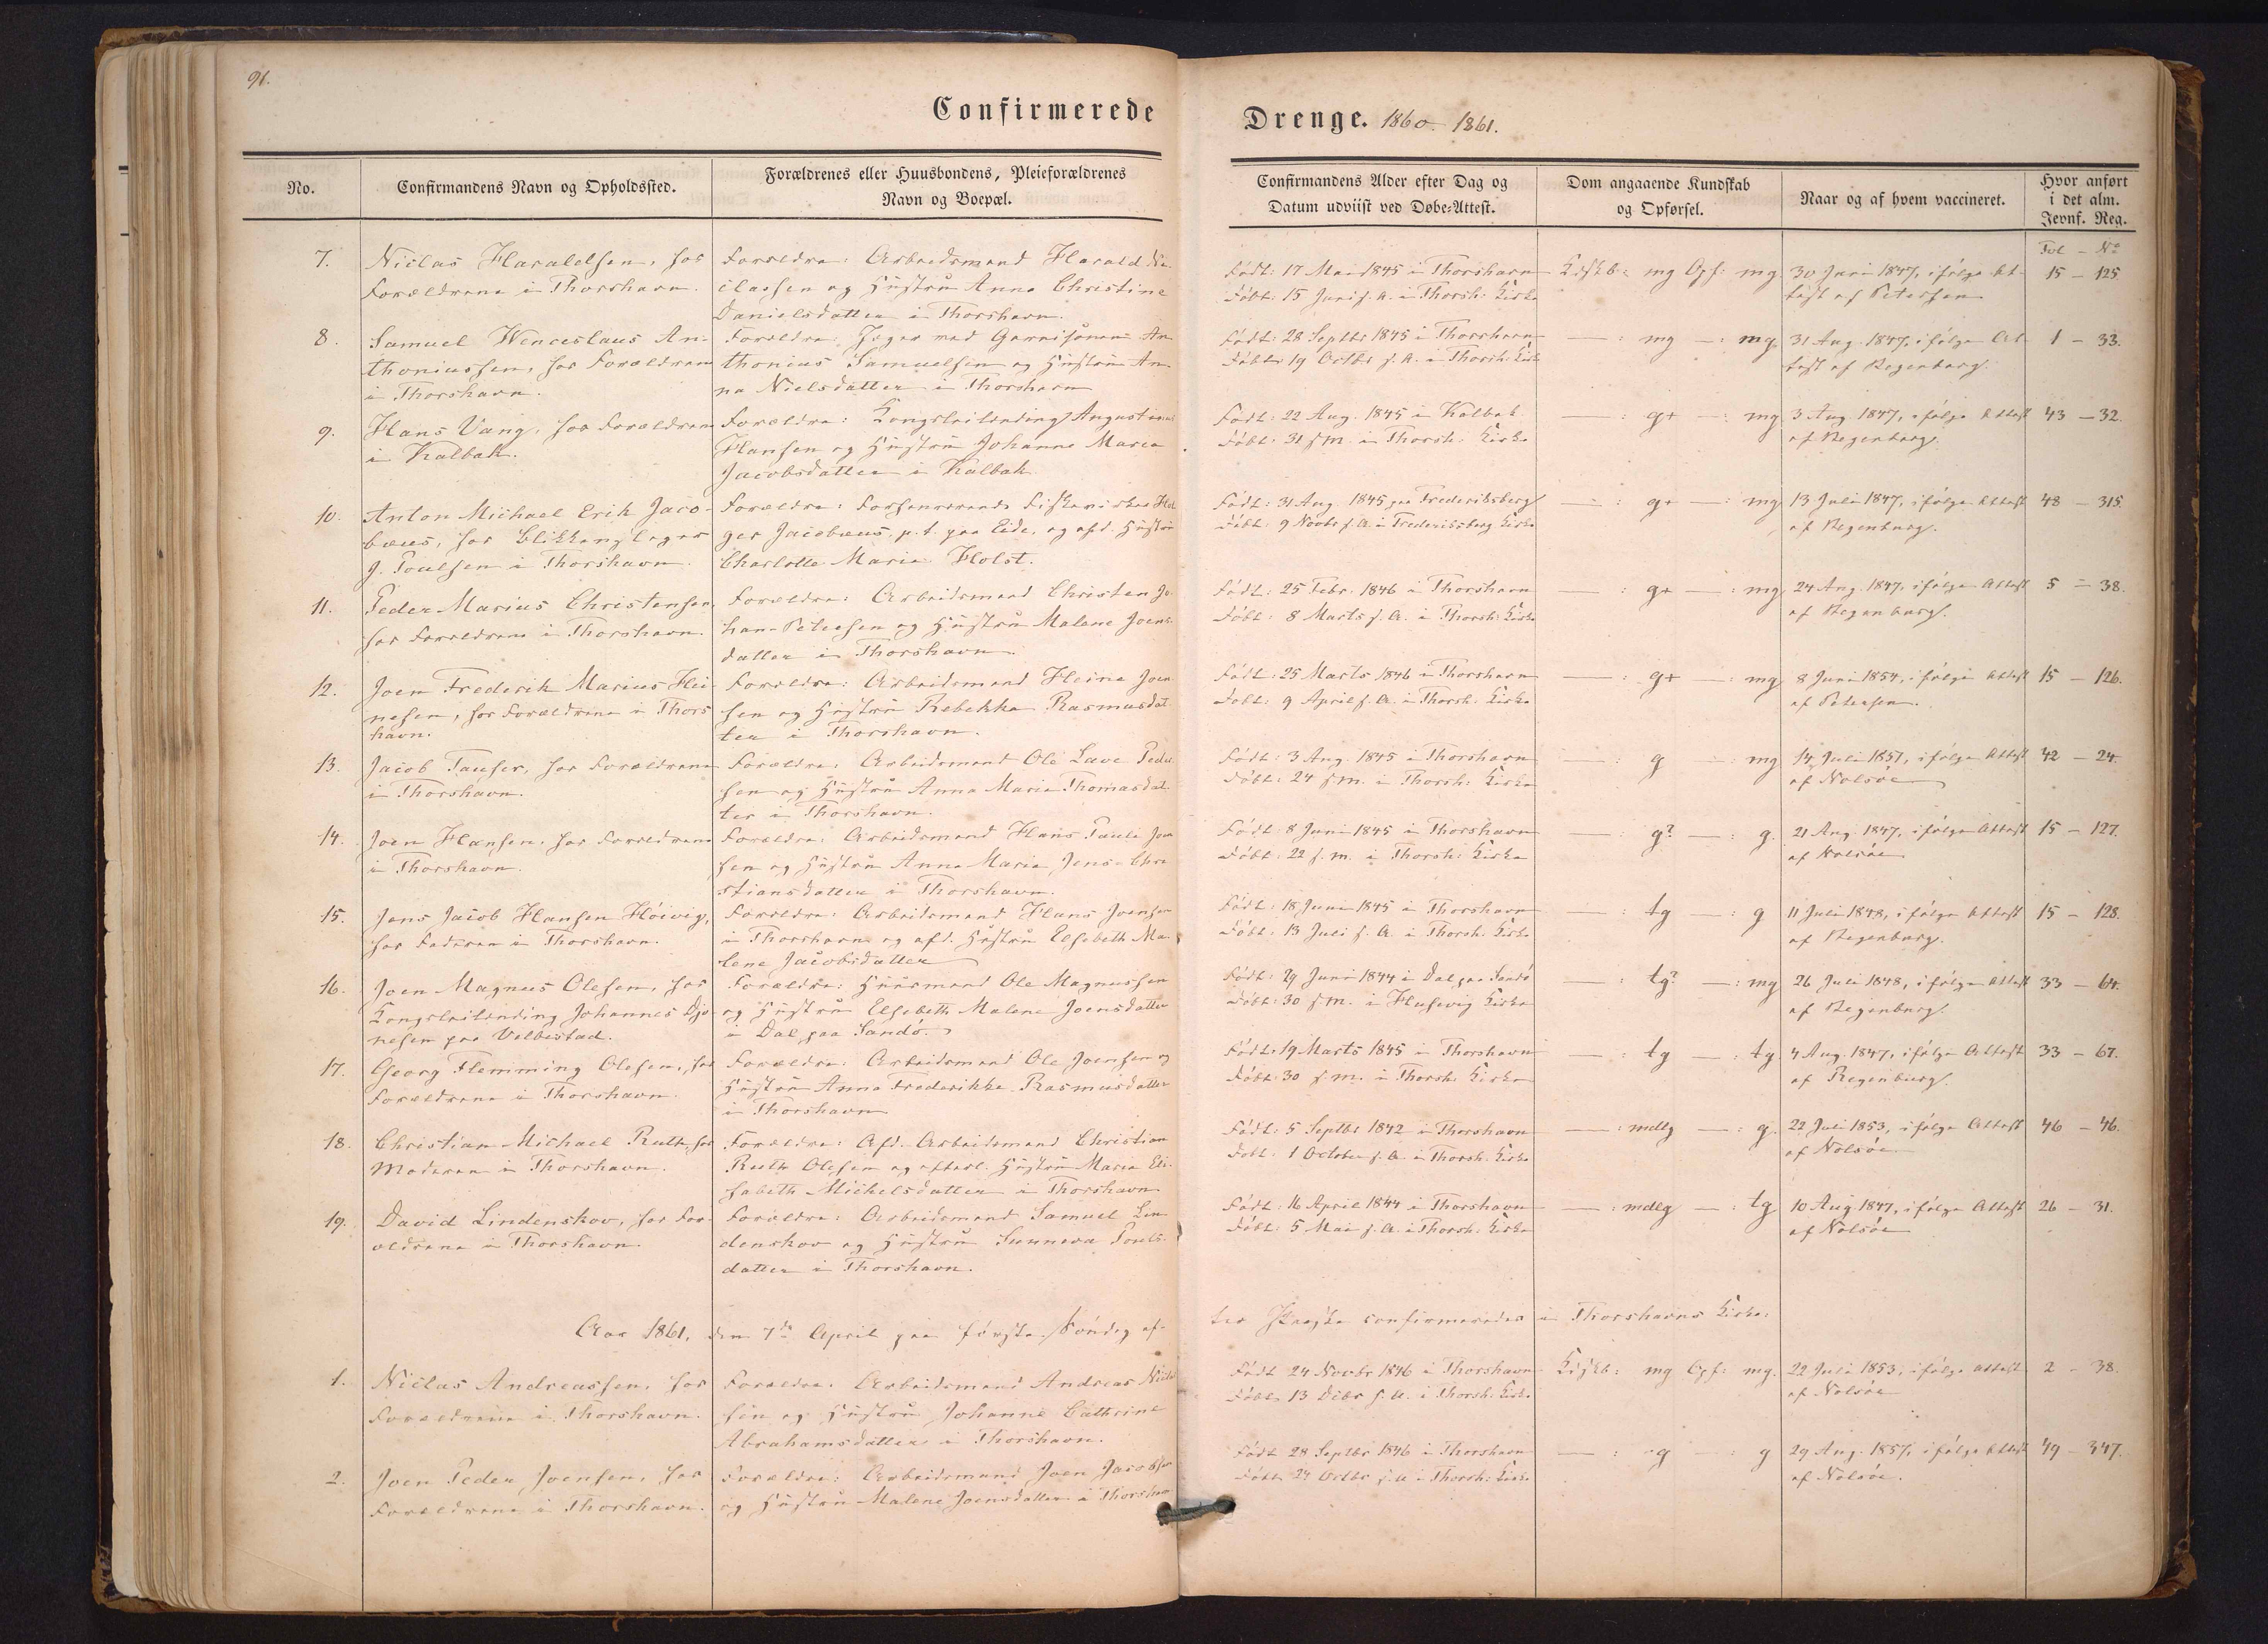 91.
Confirmerede
Drenge. 1860. 1861.
No.
Confirmandens Navn og Opholdssted.
Forældrenes eller Huusbondens, Pleieforældrenes
Navn og Boepæl.
Confirmandens Alder efter Dag og
Datum udviist ved Døbe-Attest.
Dom angaaende Kundskab
og Opførsel.
Naar og af hvem vaccineret.
Hvor anført
i det alm.
Jevnf. Reg.
Fol - No
7.
Niclas Haraldsen, hos
Forældrene i Thorshavn.
Forældre: Arbeidsmand Harald Ni-
classen og Hustru Anna Christine
Danielsdatter i Thorshavn.
Født: 17 Mai 1845 i Thorshavn
Døbt: 15 Juni s. A. i Thorsh. Kirke
Kdskb: mg Opf: mg.
30 Juni 1847, ifølge At-
test af Petersen
15 - 125
8.
Samuel Wenceslaus An-
thoniussen, hos Forældrene
i Thorshavn.
Forældre: Jæger ved Garnisonen An-
thonius Samuelsen og Hustru An-
na Nielsdatter i Thorshavn
Født: 28 Septbr 1845 i Thorshavn
Døbt: 19 Octbr s. A. i Thorsh. Kirke
— : mg — : mg.
31 Aug. 1847, ifølge At-
test af Regenburg.
1 - 33.
9.
Hans Vang, hos Forældrene
i Kalbak.
Forældre: Kongsleilending Augustinus
Hansen og Hustru Johanne Maria
Jacobsdatter i Kalbak
Født: 22 Aug. 1845 i Kalbak
Døbt: 31 s. m. i Thorsh. Kirke
— : g+ — : mg
3 Aug. 1847, ifølge Attest
af Regenburg.
43 - 32.
10.
Anton Michael Erik Jaco-
bæus, hos Blikkenslager
J. Poulsen i Thorshavn.
Forældre: Forhenværende Hol-
ger Jacobæus, p. t. paa Eide, og afd. Hustru
Charlotte Marie Holst.
Født: 31 Aug. 1845 paa Frederiksberg
Døbt: 9 Novbr s. A. i Frederiksberg Kirke
— : g+ — : mg
13 Juli 1847, ifølge Attest
af Regenburg.
48 - 315.
11.
Peder Marius Christensen,
hos Forældrene i Thorshavn.
Forældre: Arbeidsmand Christen Jo-
han Petersen og Hustru Malene Joens-
datter i Thorshavn.
Født: 25 Febr. 1846 i Thorshavn
Døbt: 8 Marts s. A. i Thorsh. Kirke
— : g+ — : mg
24 Aug. 1847, ifølge Attest
af Regenburg.
5 - 38.
12.
Joen Frederik Marius Hei-
nesen, hos Forældrene i Thors-
havn.
Forældre: Arbeidsmand Heine Joen-
sen og Hustru Rebekka Rasmusdat-
ter i Thorshavn.
Født: 25 Marts 1846 i Thorshavn
Døbt: 9 April s. A. i Thorsh. Kirke
— : g+ — : mg
8 Juni 1854, ifølge Attest
af Petersen.
15 - 126.
13.
Jacob Tauser, hos Forældrene
i Thorshavn.
Forældre: Arbeidsmand Ole Lave Peder-
sen og Hustru Anna Maria Thomasdat-
ter i Thorshavn.
Født: 3 Aug. 1845 i Thorshavn
Døbt: 24 s. m. i Thorsh. Kirke
— : g — : mg
14 Juli 1857, ifølge Attest
af Nolsøe
42 - 24.
14.
Joen Hansen, hos Forældrene
i Thorshavn.
Forældre: Arbeidsmand Hans Paule Joen-
sen og Hustru Anna Maria Jens-Chri-
stiansdatter i Thorshavn.
Født: 8 Juni 1845 i Thorshavn
Døbt: 22 s. m. i Thorsh. Kirke
— : g? — : g.
21 Aug. 1847, ifølge Attest
af Nolsøe
15 - 127.
15.
Jens Jacob Hansen Höivig,
hos Faderen i Thorshavn.
Forældre: Arbeidsmand Hans Joensen
i Thorshavn og afd. Hustru Elsebeth Ma-
lene Jacobsdatter
Født: 18 Juni 1845 i Thorshavn
Døbt: 13 Juli s. A. i Thorsh. Kirke
— : tg — : g
11 Juli 1848, ifølge Attest
af Regenburg.
15 - 128.
16.
Joen Magnus Olesen, hos
Kongsleilending Johannes Djo-
nesen paa Velbestad.
Forældre: Huusmand Ole Magnussen
og Hustru Elsebeth Malene Joensdatter
i Dal paa Sandö.
Født: 29 Juni 1844 i Dal paa Sandö
Døbt: 30 s. m. i Husevig Kirke
— : tg? — : mg
26 Juli 1848, ifølge Attest
af Regenburg.
33 - 64.
17.
Georg Flemming Olesen, hos
Forældrene i Thorshavn.
Forældre: Arbeidsmand Ole Joensen og
Hustru Anna Frederikke Rasmusdatter
i Thorshavn
Født: 19 Marts 1845 i Thorshavn
Døbt: 30 s. m. i Thorsh. Kirke
— : tg — : tg.
4 Aug. 1847, ifølge Attest
af Regenburg.
33 - 67.
18.
Christian Michael Ruth, hos
Moderen i Thorshavn.
Forældre: Afd. Arbeidsmand Christian
Ruth Olesen og efterl. Hustru Maria Eli-
sabeth Michelsdatter i Thorshavn
Født: 5 Septbr 1842 i Thorshavn
Døbt: 1 October s. A. i Thorsh. Kirke
— : mdlg — : g.
22 Juli 1853, ifølge Attest
af Nolsøe.
46 - 46.
19.
David Lindenskov, hos For-
ældrene i Thorshavn.
Forældre: Arbeidsmand Samuel Lin-
denskov og Hustru Sunneva Pouls-
datter i Thorshavn.
Født: 16 April 1844 i Thorshavn
Døbt: 5 Mai s. A. i Thorsh. Kirke
— : mdlg — : tg
10 Aug. 1847, ifølge Attest
af Nolsøe
26 - 31.
Aar 1861, den 7de April paa første Søndag ef-
ter Paaske confirmeredes i Thorshavns Kirke:
1.
Niclas Andreassen, hos
Forældrene i Thorshavn.
Forældre: Arbeidsmand Andreas Niclas-
sen og Hustru Johanne Cathrine
Abrahamsdatter i Thorshavn.
Født 24 Novbr 1846 i Thorshavn
Døbt 13 Decbr s. A. i Thorsh. Kirke
Kdskb: mg Opf: mg.
22 Juli 1853, ifølge Attest
af Nolsøe
2 - 38.
2.
Joen Peder Joensen, hos
Forældrene i Thorshavn.
Forældre: Arbeidsmand Joen Jacobsen
og Hustru Malene Joensdatter i Thorshavn
Født 28 Septbr 1846 i Thorshavn
Døbt 24 Octbr s. A. i Thorsh. Kirke
— : g — : g
29 Aug. 1857, ifølge Attest
af Nolsøe.
49 - 347.